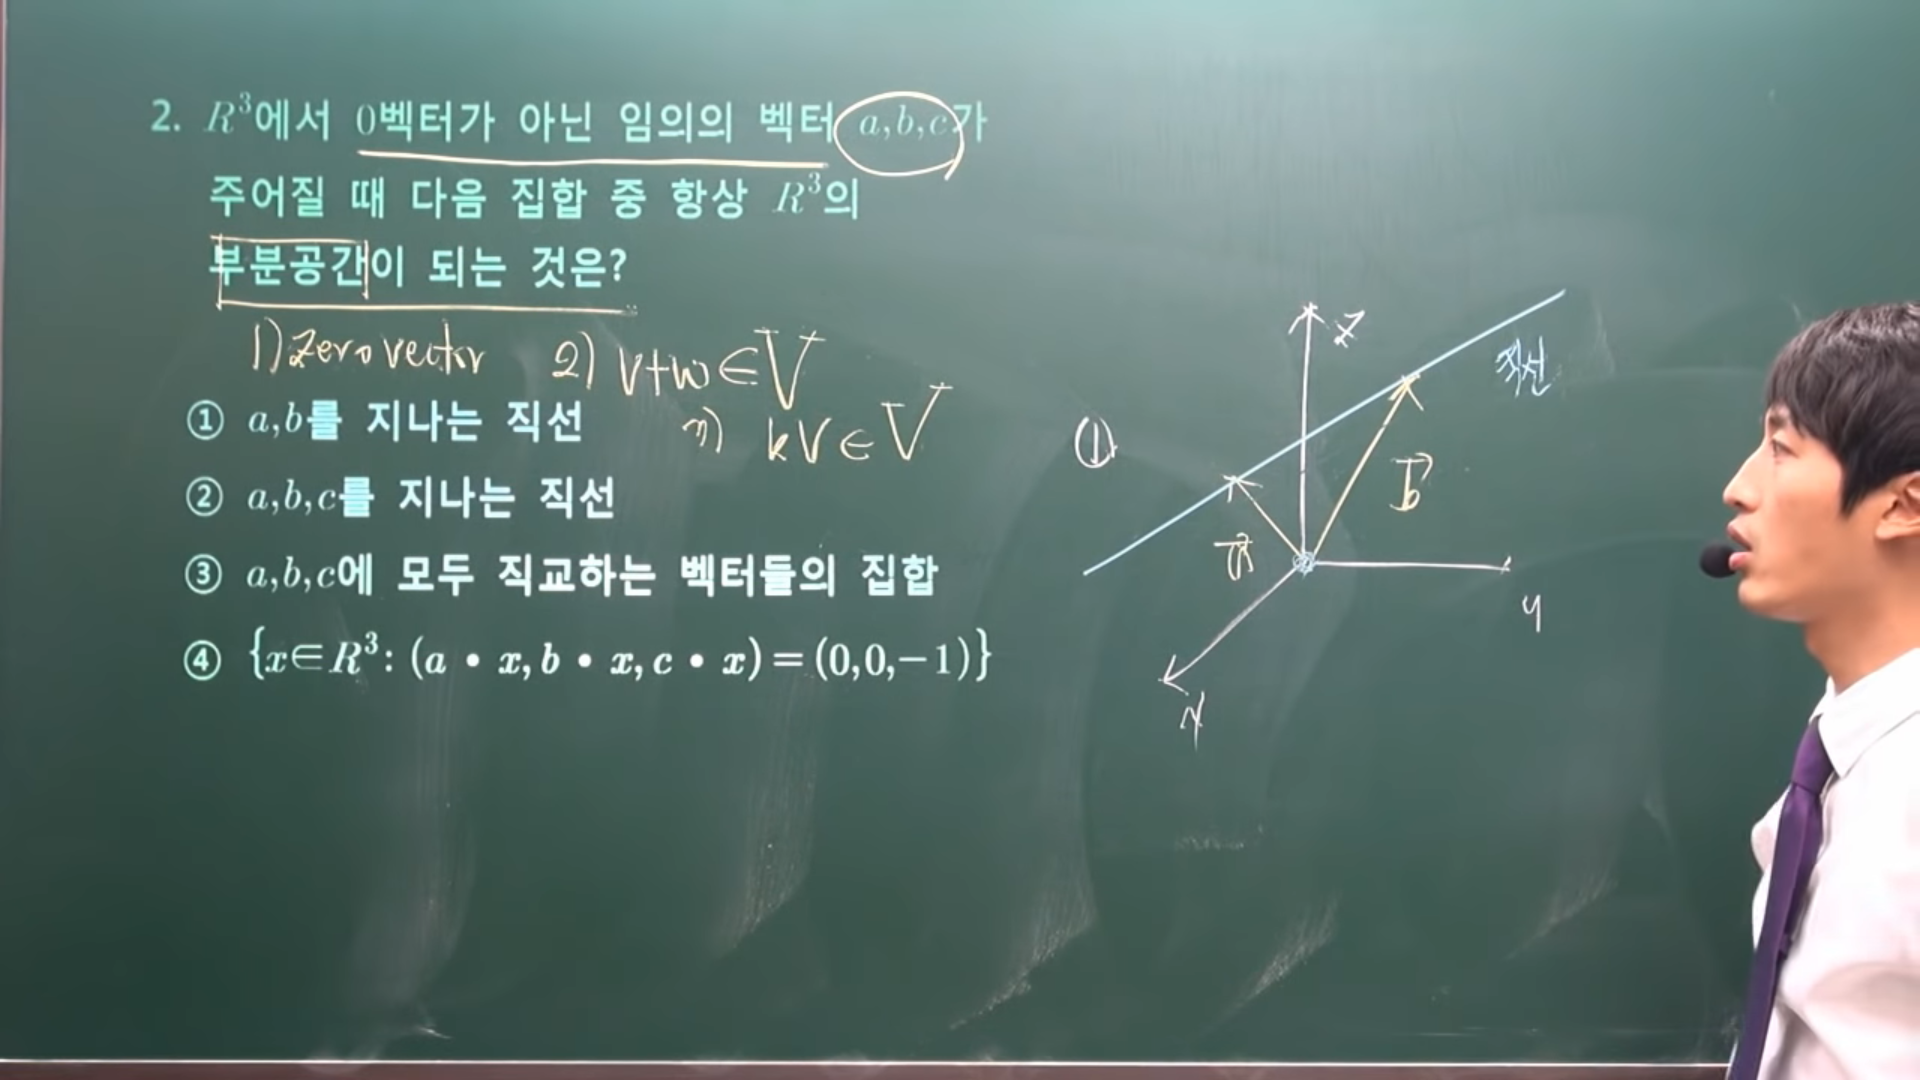 2. R³에서 0벡터가 아닌 임의의 벡터 a,b,c가
주어질 때 다음 집합 중 항상 R³의
부분공간이 되는 것은?
1) zero vector 2) v+w∈V
kv∈V
① a,b를 지나는 직선
② a,b,c를 지나는 직선
③ a,b,c에 모두 직교하는 벡터들의 집합
④ {x∈R³: (a • x, b • x, c • x) = (0,0,−1)}
①
z
직선
b
a
y
x